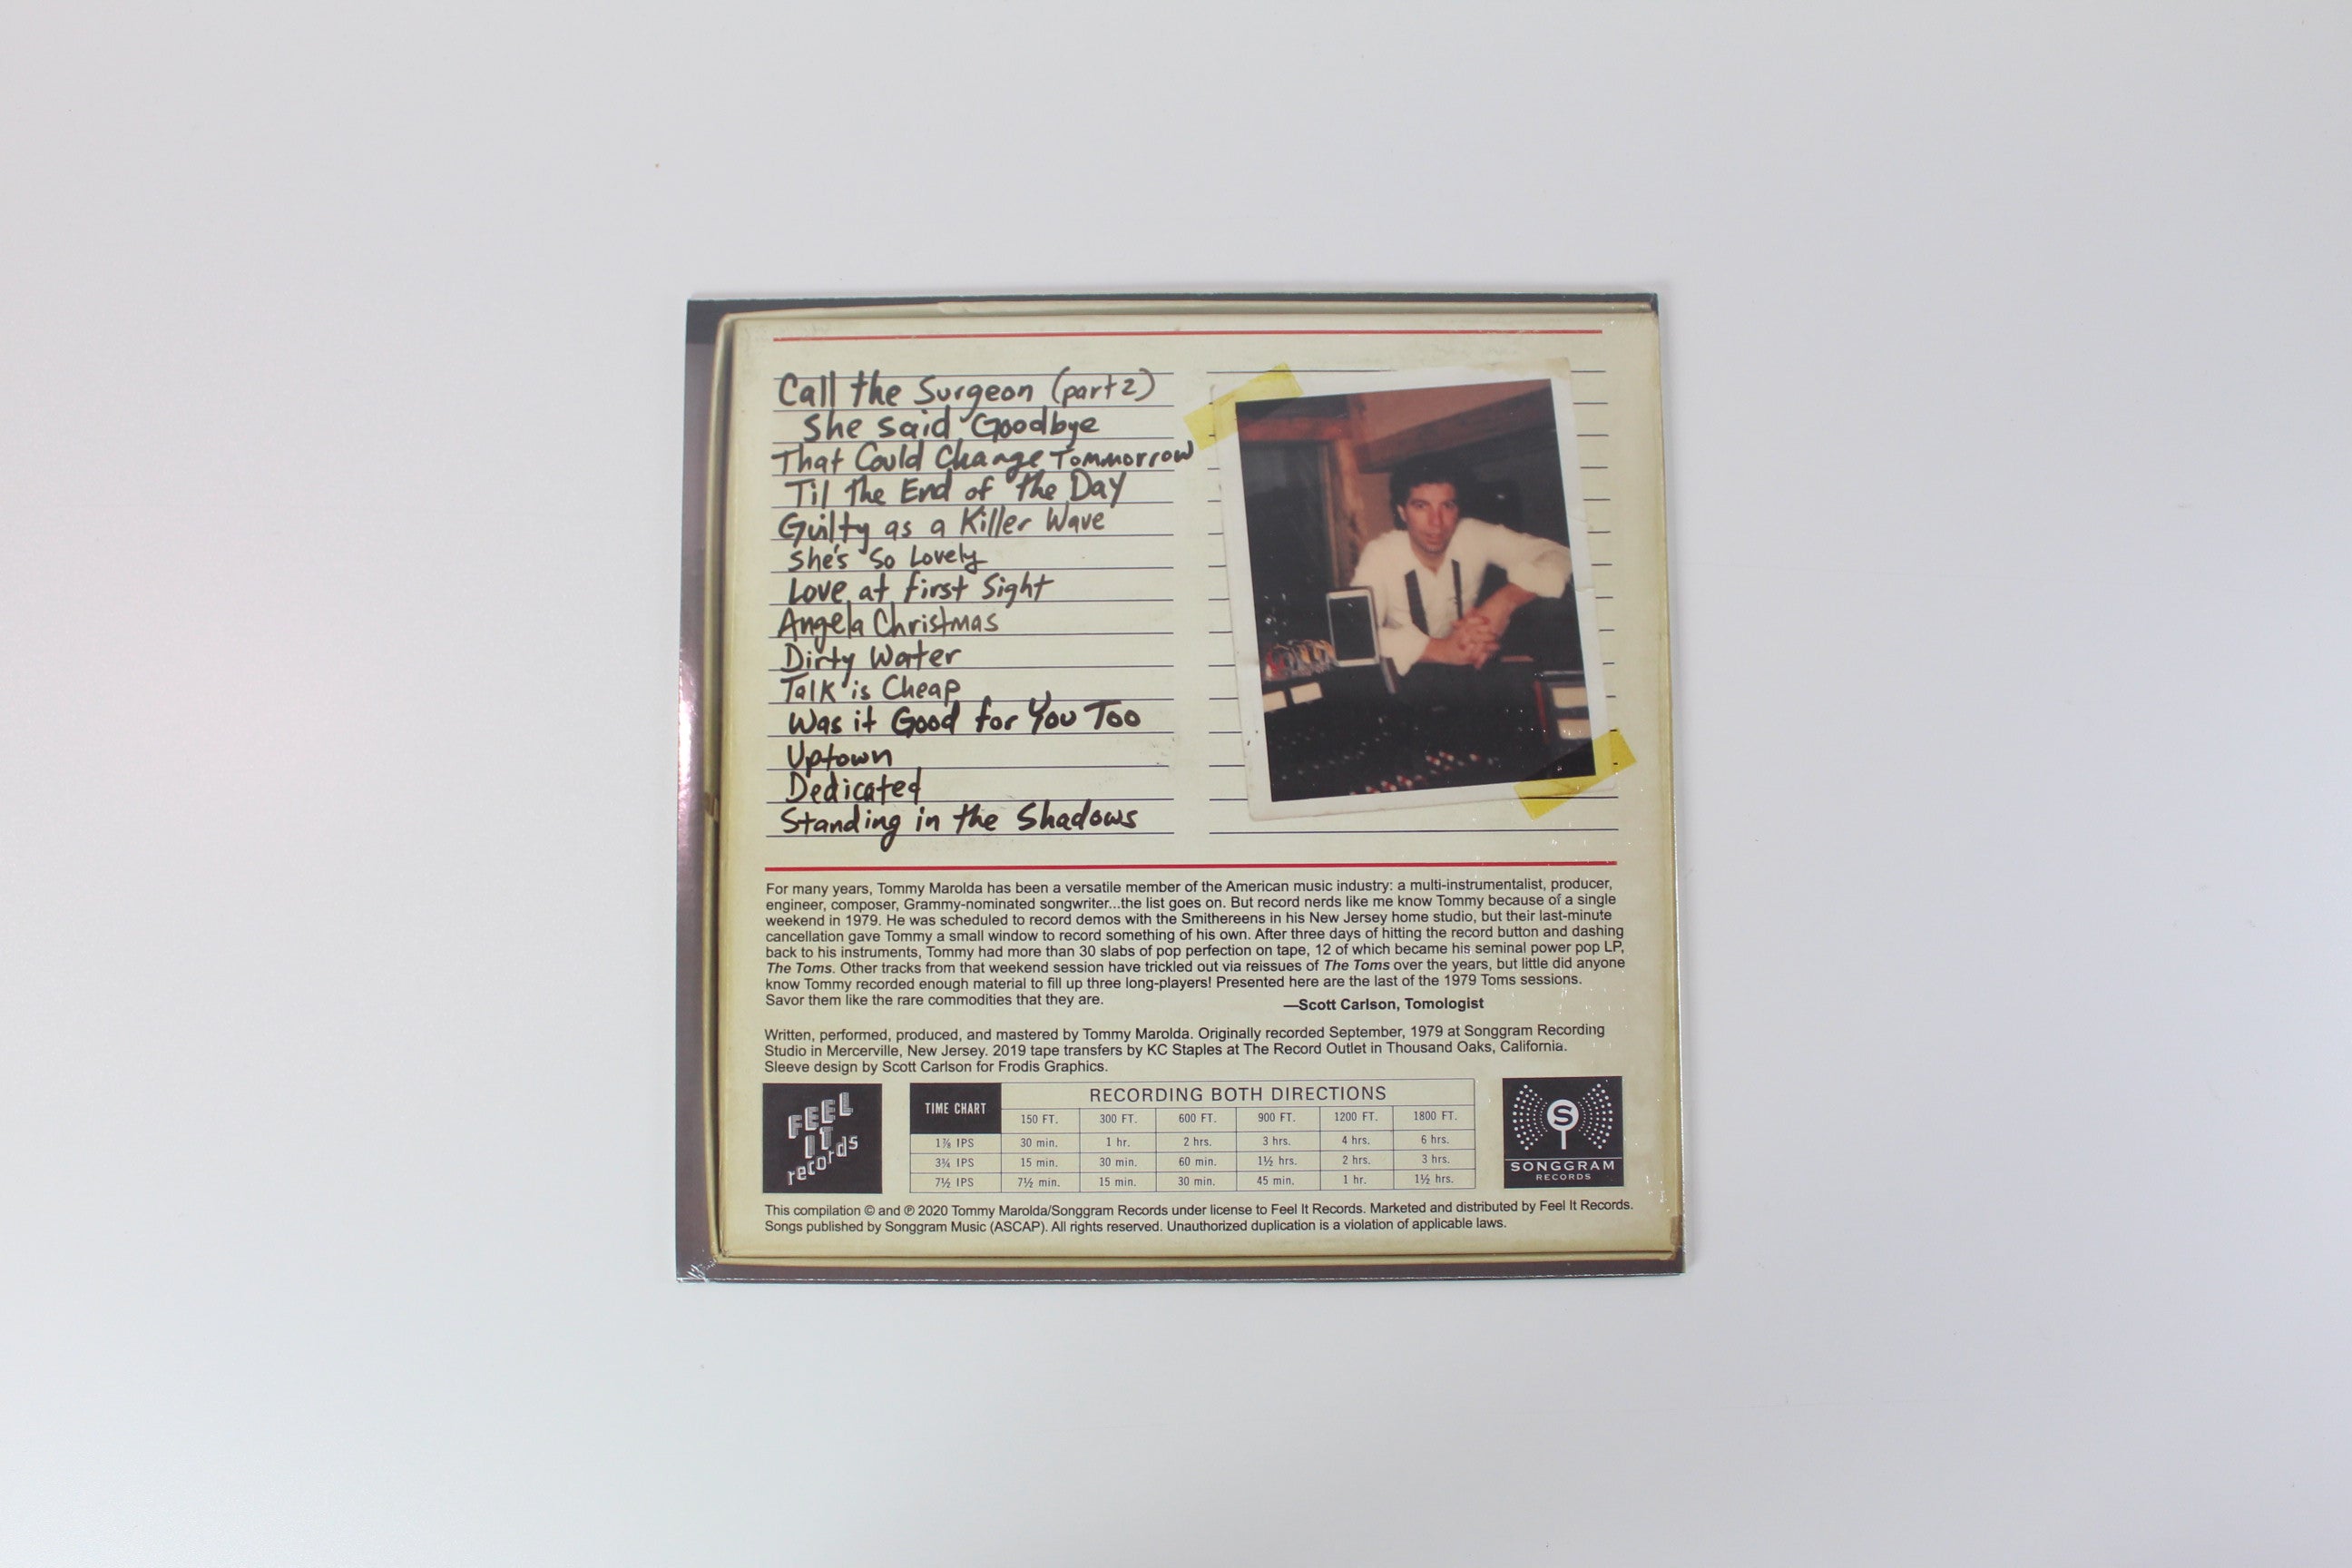 Call the Surgeon (part 2)
She said Goodbye
That Could Change Tommorrow
Til the End of the Day
Guilty as a Killer Wave
She's So Lovely
Love at first Sight
Angela Christmas
Dirty Water
Talk is Cheap
Was it Good for You Too
Uptown
Dedicated
Standing in the Shadows
For many years, Tommy Marolda has been a versatile member of the American music industry: a multi-instrumentalist, producer,
engineer, composer, Grammy-nominated songwriter...the list goes on. But record nerds like me know Tommy because of a single
weekend in 1979. He was scheduled to record demos with the Smithereens in his New Jersey home studio, but their last-minute
cancellation gave Tommy a small window to record something of his own. After three days of hitting the record button and dashing
back to his instruments, Tommy had more than 30 slabs of pop perfection on tape, 12 of which became his seminal power pop LP,
The Toms. Other tracks from that weekend session have trickled out via reissues of The Toms over the years, but little did anyone
know Tommy recorded enough material to fill up three long-players! Presented here are the last of the 1979 Toms sessions.
Savor them like the rare commodities that they are.
—Scott Carlson, Tomologist
Written, performed, produced, and mastered by Tommy Marolda. Originally recorded September, 1979 at Songgram Recording
Studio in Mercerville, New Jersey. 2019 tape transfers by KC Staples at The Record Outlet in Thousand Oaks, California.
Sleeve design by Scott Carlson for Frodis Graphics.
FEEL
IT
records
TIME CHART
RECORDING BOTH DIRECTIONS
150 FT. 300 FT. 600 FT. 900 FT. 1200 FT. 1800 FT.
1⅞ IPS 30 min. 1 hr. 2 hrs. 3 hrs. 4 hrs. 6 hrs.
3¾ IPS 15 min. 30 min. 60 min. 1½ hrs. 2 hrs. 3 hrs.
7½ IPS 7½ min. 15 min. 30 min. 45 min. 1 hr. 1½ hrs.
S
SONGGRAM
RECORDS
This compilation © and ℗ 2020 Tommy Marolda/Songgram Records under license to Feel It Records. Marketed and distributed by Feel It Records.
Songs published by Songgram Music (ASCAP). All rights reserved. Unauthorized duplication is a violation of applicable laws.